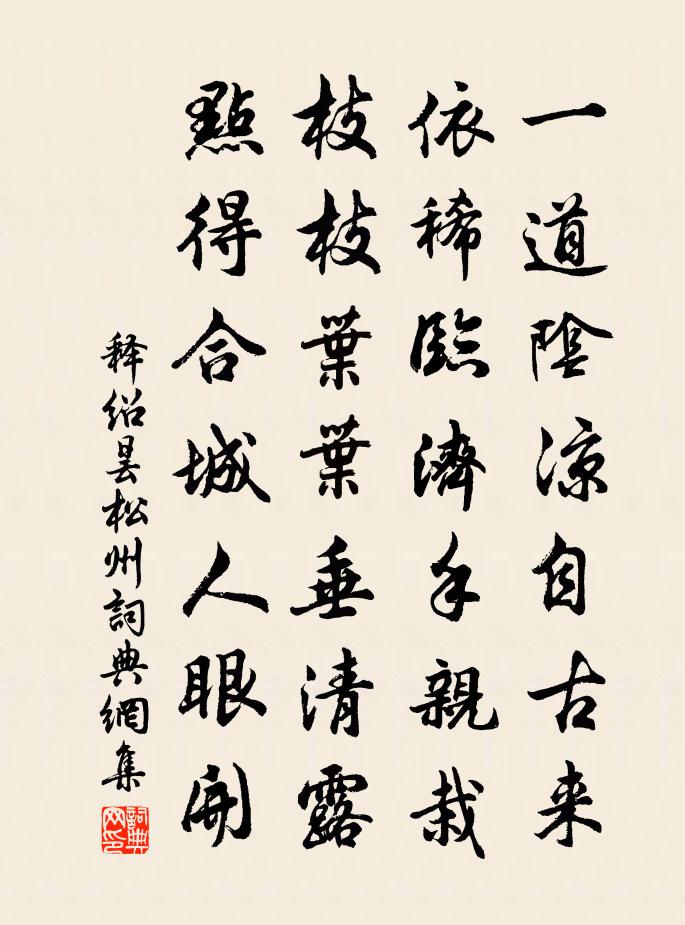 一道陰凉自古来
依稀臨濟手親栽
枝枝葉葉垂清露
點得合城人眼開
释绍昙松州詞典網集
詞典网印